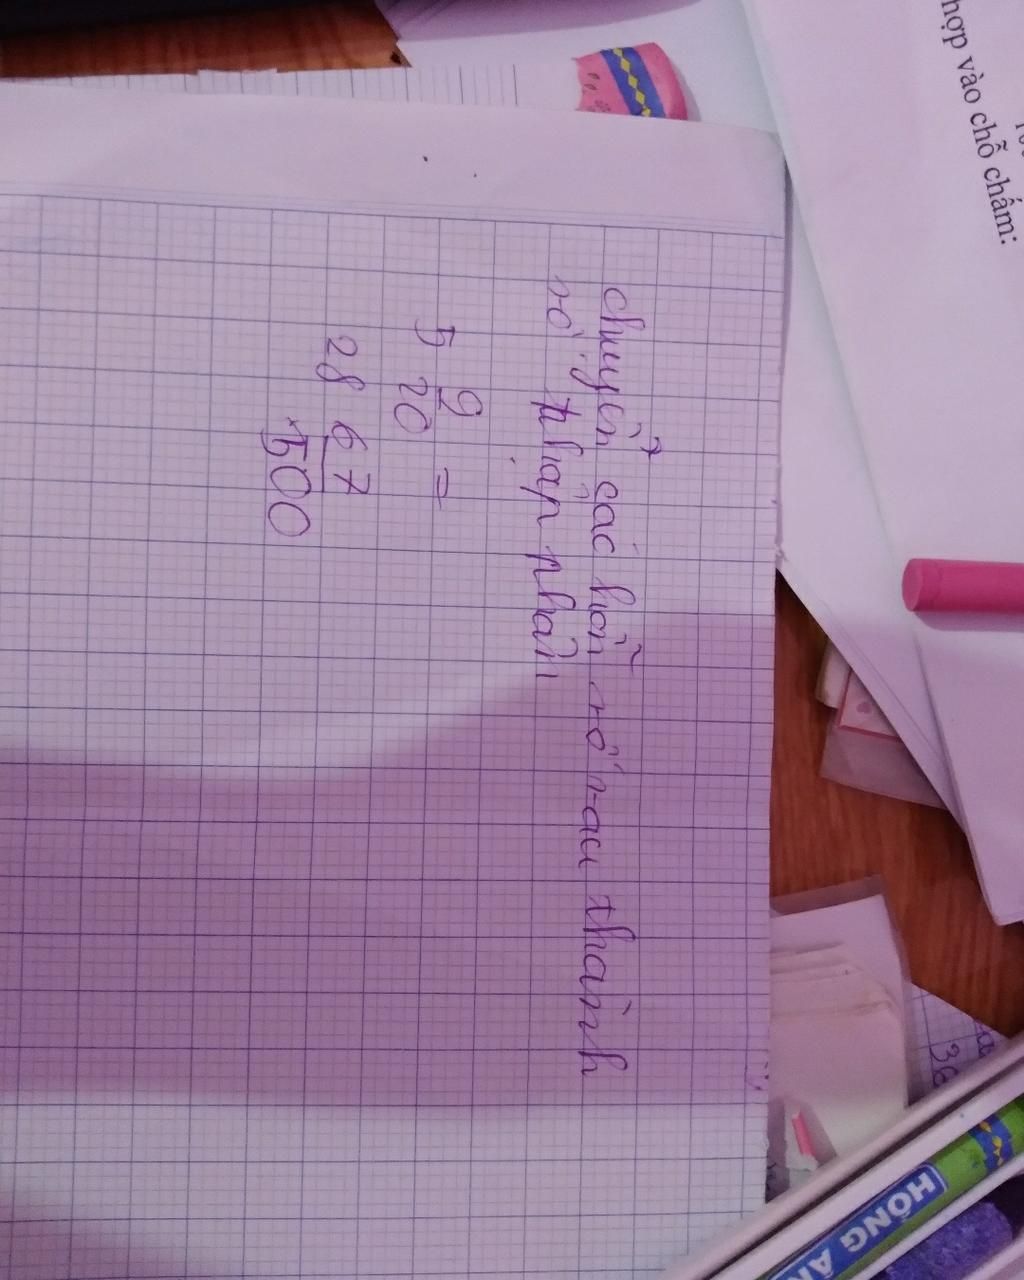 hợp vào chỗ chấm:
chuyển các hỗn số sau thành
số thập phân
5 9/20 =
28 67/500
HỒNG ÂN